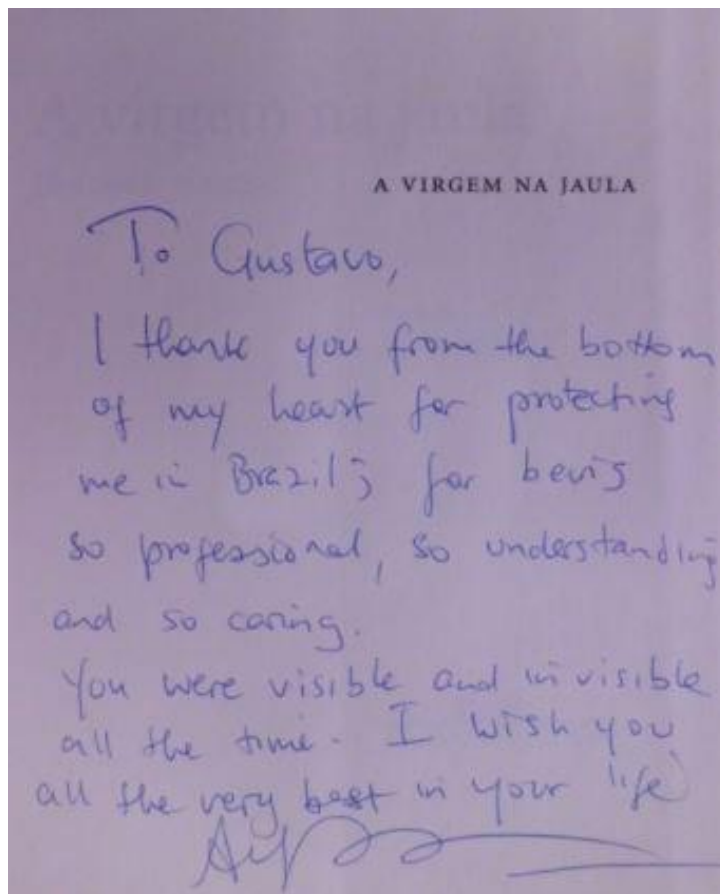 A VIRGEM NA JAULA
To Gustavo,
I thank you from the bottom
of my heart for protecting
me in Brazil; for being
so professional, so understanding
and so caring.
You were visible and invisible
all the time. I wish you
all the very best in your life